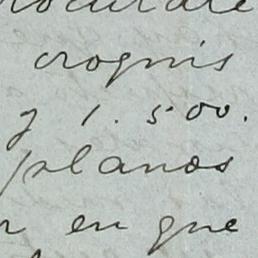 croquis
y 1.500.
planos
en que